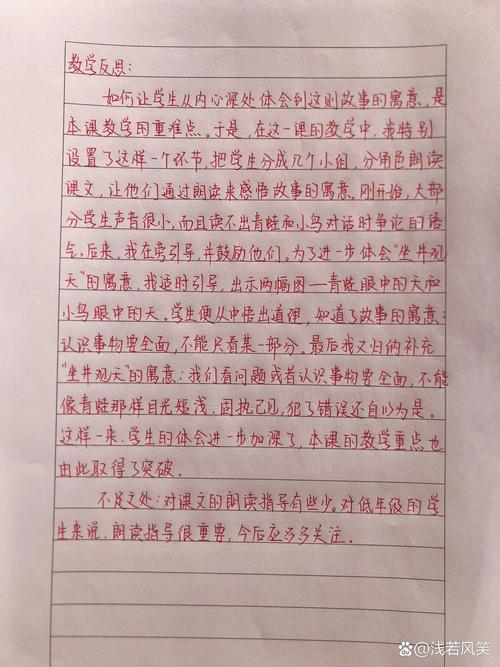 教学反思:
如何让学生从内心深处体会到这则故事的寓意,是
本课教学的重难点。于是,在这一课的教学中,我特别
设置了这样一个环节,把学生分成几个小组,分角色朗读
课文,让他们通过朗读来感悟故事的寓意。刚开始,大部
分学生声音很小,而且读不出青蛙和小鸟对话时争论的语
气。后来,我在旁引导,并鼓励他们。为了进一步体会“坐井观
天”的寓意,我适时引导,出示两幅图——青蛙眼中的天和
小鸟眼中的天。学生便从中悟出道理,知道了故事的寓意:
认识事物要全面,不能只看某一部分。最后我又归纳补充
“坐井观天”的寓意:我们看问题或者认识事物要全面,不能
像青蛙那样目光短浅、固执己见,犯了错误还自以为是。
这样一来,学生的体会进一步加深了,本课的教学重点也
由此取得了突破。
不足之处:对课文的朗读指导有些少。对低年级的学
生来说,朗读指导很重要,今后应多多关注。
@浅若风笑